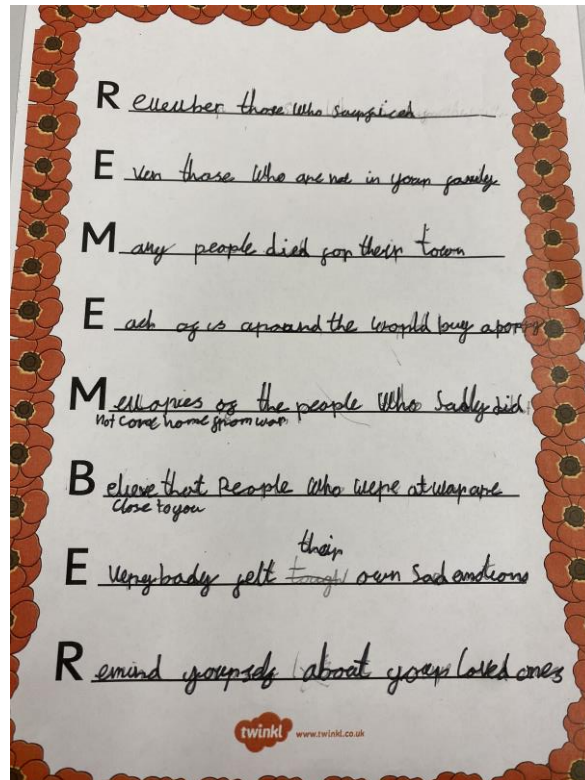 Remember those who sacrificed
Even those who are not in your family
Many people died for their town
Each of us around the world buy a poppy
Memories of the people who sadly did
not come home from war
Believe that people who were at war are
close to you
their
Everybody felt own sad emotions
Remind yourself about your loved ones
twinkl www.twinkl.co.uk